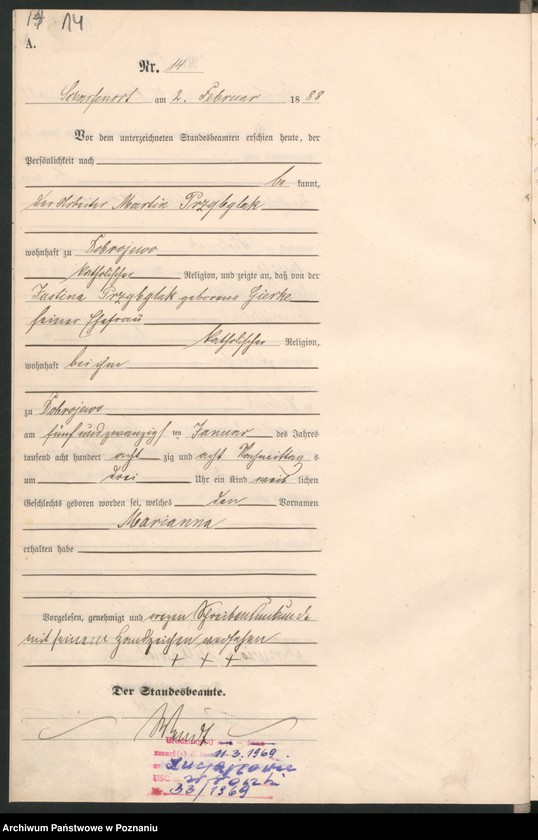 14 14
A.
Nr. 14
Scharfenort am 2. Februar 1888
Vor dem unterzeichneten Standesbeamten erschien heute, der
Persönlichkeit nach
be kannt,
der Arbeiter Martin Przybylak
wohnhaft zu Dobrojewo
katholischer Religion, und zeigte an, daß von der
Justina Przybylak geborene Gierke
seiner Ehefrau
katholischer Religion,
wohnhaft bei ihm
zu Dobrojewo
am fünf und zwanzigs ten Januar des Jahres
tausend acht hundert acht zig und acht Nachmittag s
um drei Uhr ein Kind weib lichen
Geschlechts geboren worden sei, welches den Vornamen
Marianna
erhalten habe
Vorgelesen, genehmigt und wegen Schreibensunkunde
mit seinem Handzeichen versehen
+ + +
Der Standesbeamte.
Wendt
zmarł(a) 11.3.1969
USC
Nr 33/1969
Archiwum Państwowe w Poznaniu